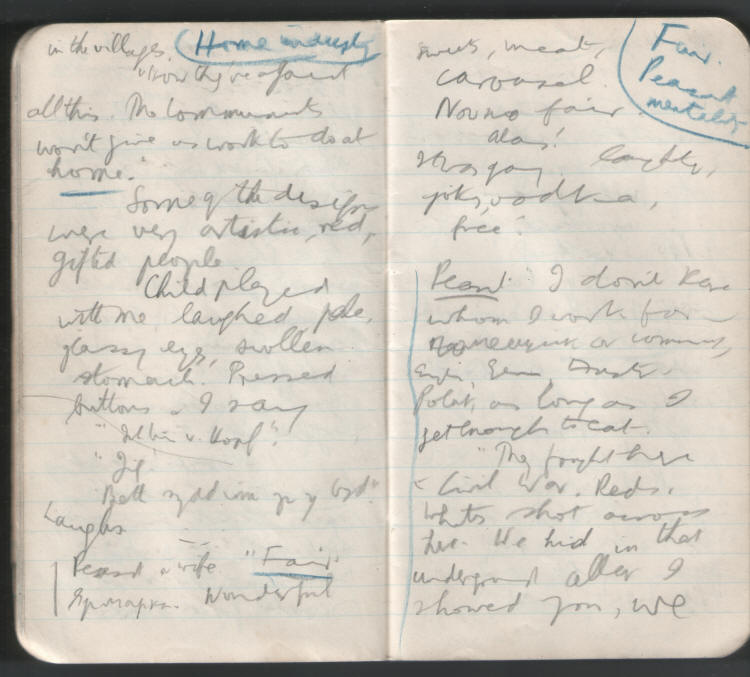 in the villages. Home industry
"Now they're afraid
all this. The Communists
won't give us work to do at
home."
Some of the designs
were very artistic, red,
gifted people
Child played
with me, laughed, pale,
glassy eyes, swollen
stomach. Pressed
buttons. I say
Laughs
Peasant & wife. "Fair.
Wonderful
sweets, meat,
carousel.
Now no fair
alas!
It was gay, laughter,
jokes, vodka,
free."
Fair.
Peasant
mentality
Peasant: I don't care
whom I work for
or commune,
as long as I
get enough to eat.
"They fought here
in Civil War. Reds,
Whites shot across
here. We hid in that
underground I
showed you, we